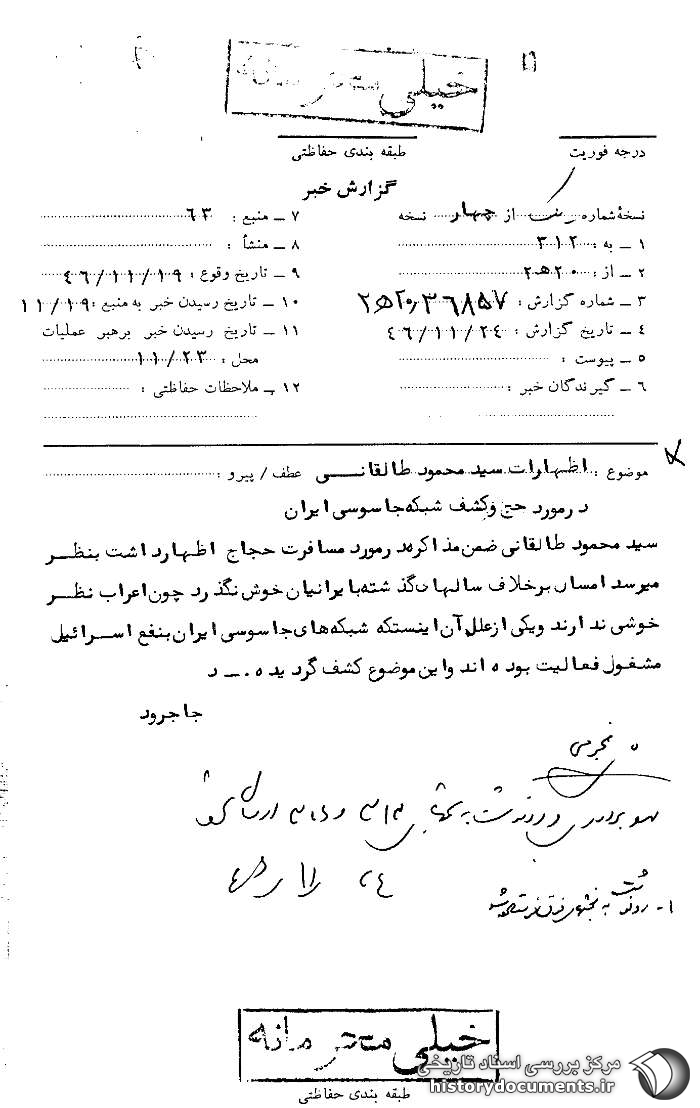 خیلی محرمانه
درجه فوریت
طبقه بندی حفاظتی
گزارش خبر
نسخهٔ شماره یک از چهار نسخه
۱ ــ به : ۳۱۲
۲ ــ از : ۲۰ ﻫ ۲
۳ ــ شماره گزارش :
۴ ــ تاریخ گزارش : ۴۶/۱۱/۲۴
۵ ــ پیوست :
۶ ــ گیرندگان خبر :
۷ ــ منبع : ۶۳
۸ ــ منشأ :
۹ ــ تاریخ وقوع : ۴۶/۱۱/۱۹
۱۰ ــ تاریخ رسیدن خبر به منبع : ۱۱/۱۹
۱۱ ــ تاریخ رسیدن خبر برهبر عملیات
محل : ۱۱/۲۳
۱۲ ــ ملاحظات حفاظتی :
موضوع : اظهارات سید محمود طالقانی عطف / پیرو :
در مورد حج و کشف شبکه جاسوسی ایران
سید محمود طالقانی ضمن مذاکره در مورد مسافرت حجاج اظهار داشت بنظر
میرسد امسال برخلاف سالهای گذشته بایرانیان خوش نگذرد چون اعراب نظر
خوشی ندارند و یکی از علل آن اینستکه شبکه های جاسوسی ایران بنفع اسرائیل
مشغول فعالیت بوده اند و این موضوع کشف گردیده . ــ د
جاجرود
خیلی محرمانه
طبقه بندی حفاظتی
مرکز بررسی اسناد تاریخی
historydocuments.ir